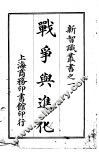 新智識叢書之
戰爭與進化
上海商務印書館印行